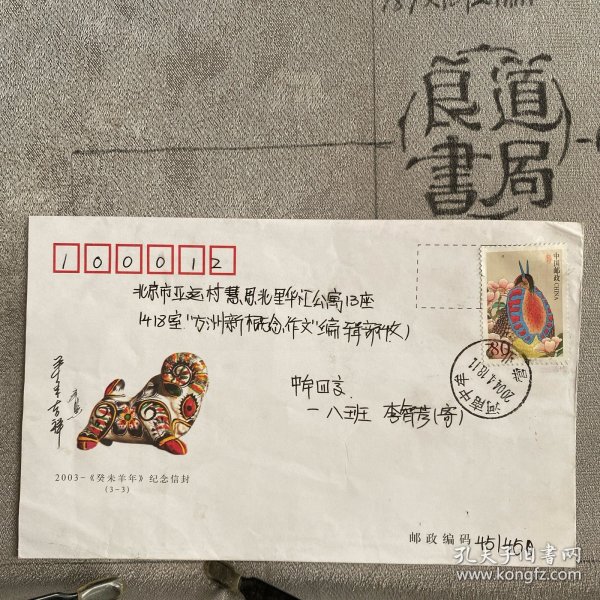 良道
書局
100012
北京市亚运村慧忠北里华汇公寓13座
1418室"方洲新概念作文"编辑部(收)
中国邮政
CHINA
80
河南中牟
2004.4.18.11
中牟四高
一·八班 李智彦(寄)
2003-《癸未羊年》纪念信封
(3-3)
邮政编码 451450
孔夫子旧书网
www.kongfz.com